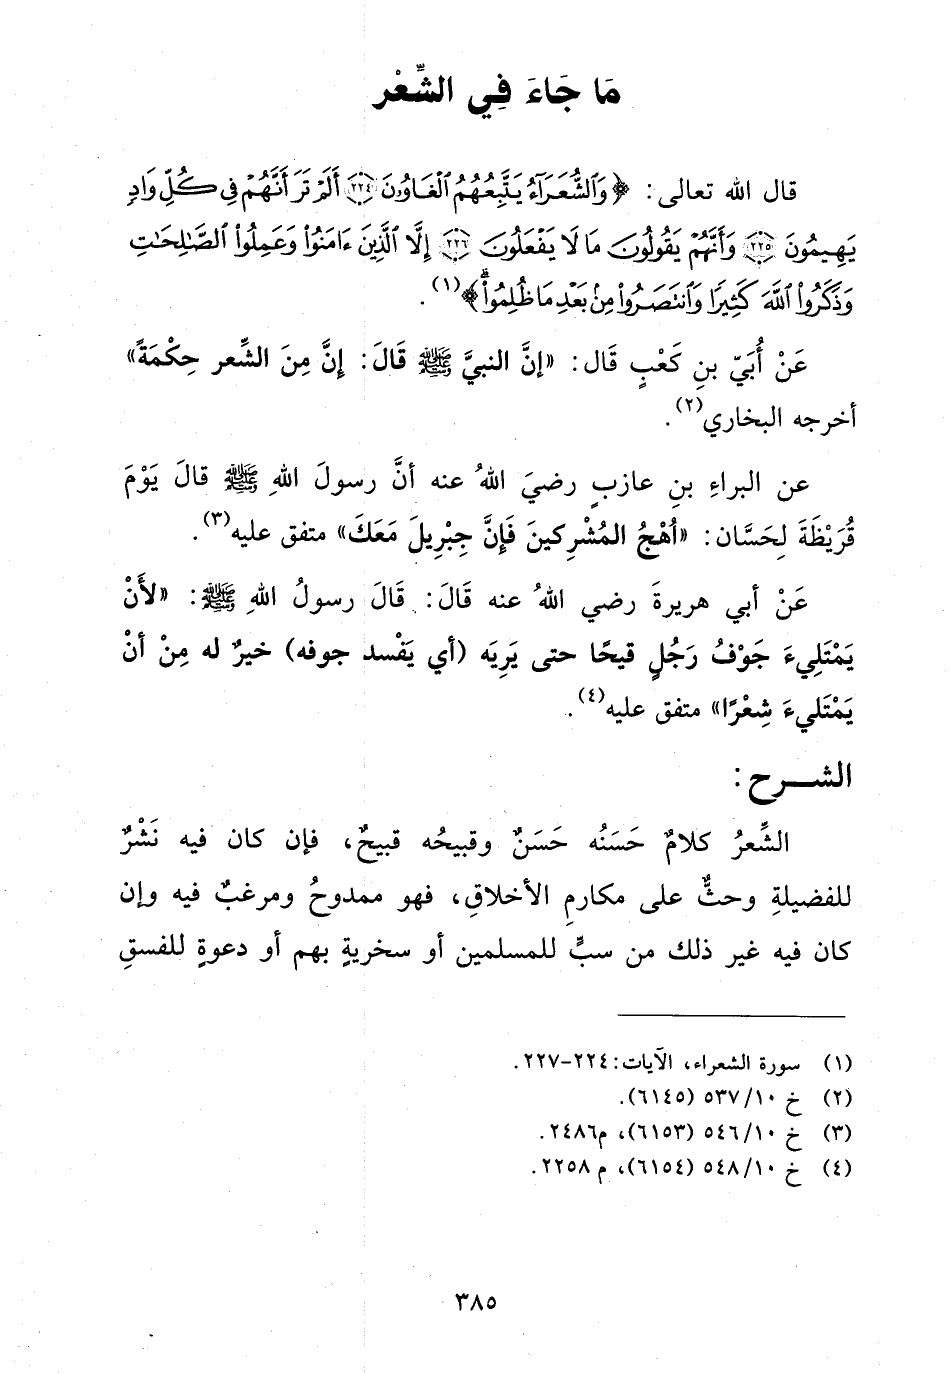 مَا جَاءَ فِي الشِّعْر
قال الله تعالى: ﴿وَٱلشُّعَرَآءُ يَتَّبِعُهُمُ ٱلْغَاوُۥنَ ۝٢٢٤ أَلَمْ تَرَ أَنَّهُمْ فِى كُلِّ وَادٍ
يَهِيمُونَ ۝٢٢٥ وَأَنَّهُمْ يَقُولُونَ مَا لَا يَفْعَلُونَ ۝٢٢٦ إِلَّا ٱلَّذِينَ ءَامَنُوا۟ وَعَمِلُوا۟ ٱلصَّٰلِحَٰتِ
وَذَكَرُوا۟ ٱللَّهَ كَثِيرًا وَٱنتَصَرُوا۟ مِنۢ بَعْدِ مَا ظُلِمُوا۟ۗ﴾(١).
عَنْ أُبَيّ بنِ كَعْبٍ قَال: «إنَّ النبيَّ ﷺ قَالَ: إنَّ مِنَ الشِّعر حِكْمَةً»
أخرجه البخاري(٢).
عن البراءِ بنِ عازبٍ رضيَ اللهُ عنه أنَّ رسولَ اللهِ ﷺ قالَ يَوْمَ
قُرَيْظَةَ لِحَسَّان: «اُهْجُ المُشْرِكينَ فَإنَّ جِبْرِيلَ مَعَكَ» متفق عليه(٣).
عَنْ أبي هريرةَ رضي اللهُ عنه قَالَ: قَالَ رسولُ اللهِ ﷺ: «لأَنْ
يَمْتَلِيءَ جَوْفُ رَجُلٍ قيحًا حتى يَرِيَه (أي يَفْسد جوفه) خيرٌ له مِنْ أنْ
يَمْتَليءَ شِعْرًا» متفق عليه(٤).
الشـــرح:
الشِّعرُ كلامٌ حَسَنُه حَسَنٌ وقبيحُه قبيحٌ، فإن كان فيه نَشْرٌ
للفضيلةِ وحثٌّ على مكارمِ الأخلاقِ، فهو ممدوحُ ومرغبٌ فيه وإن
كان فيه غير ذلك من سبٍّ للمسلمين أو سخريةٍ بهم أو دعوةٍ للفسقِ
(١) سورة الشعراء، الآيات: ٢٢٤-٢٢٧.
(٢) خ ١٠/ ٥٣٧ (٦١٤٥).
(٣) خ ١٠/ ٥٤٦ (٦١٥٣)، م٢٤٨٦.
(٤) خ ١٠/ ٥٤٨ (٦١٥٤)، م ٢٢٥٨.
٣٨٥